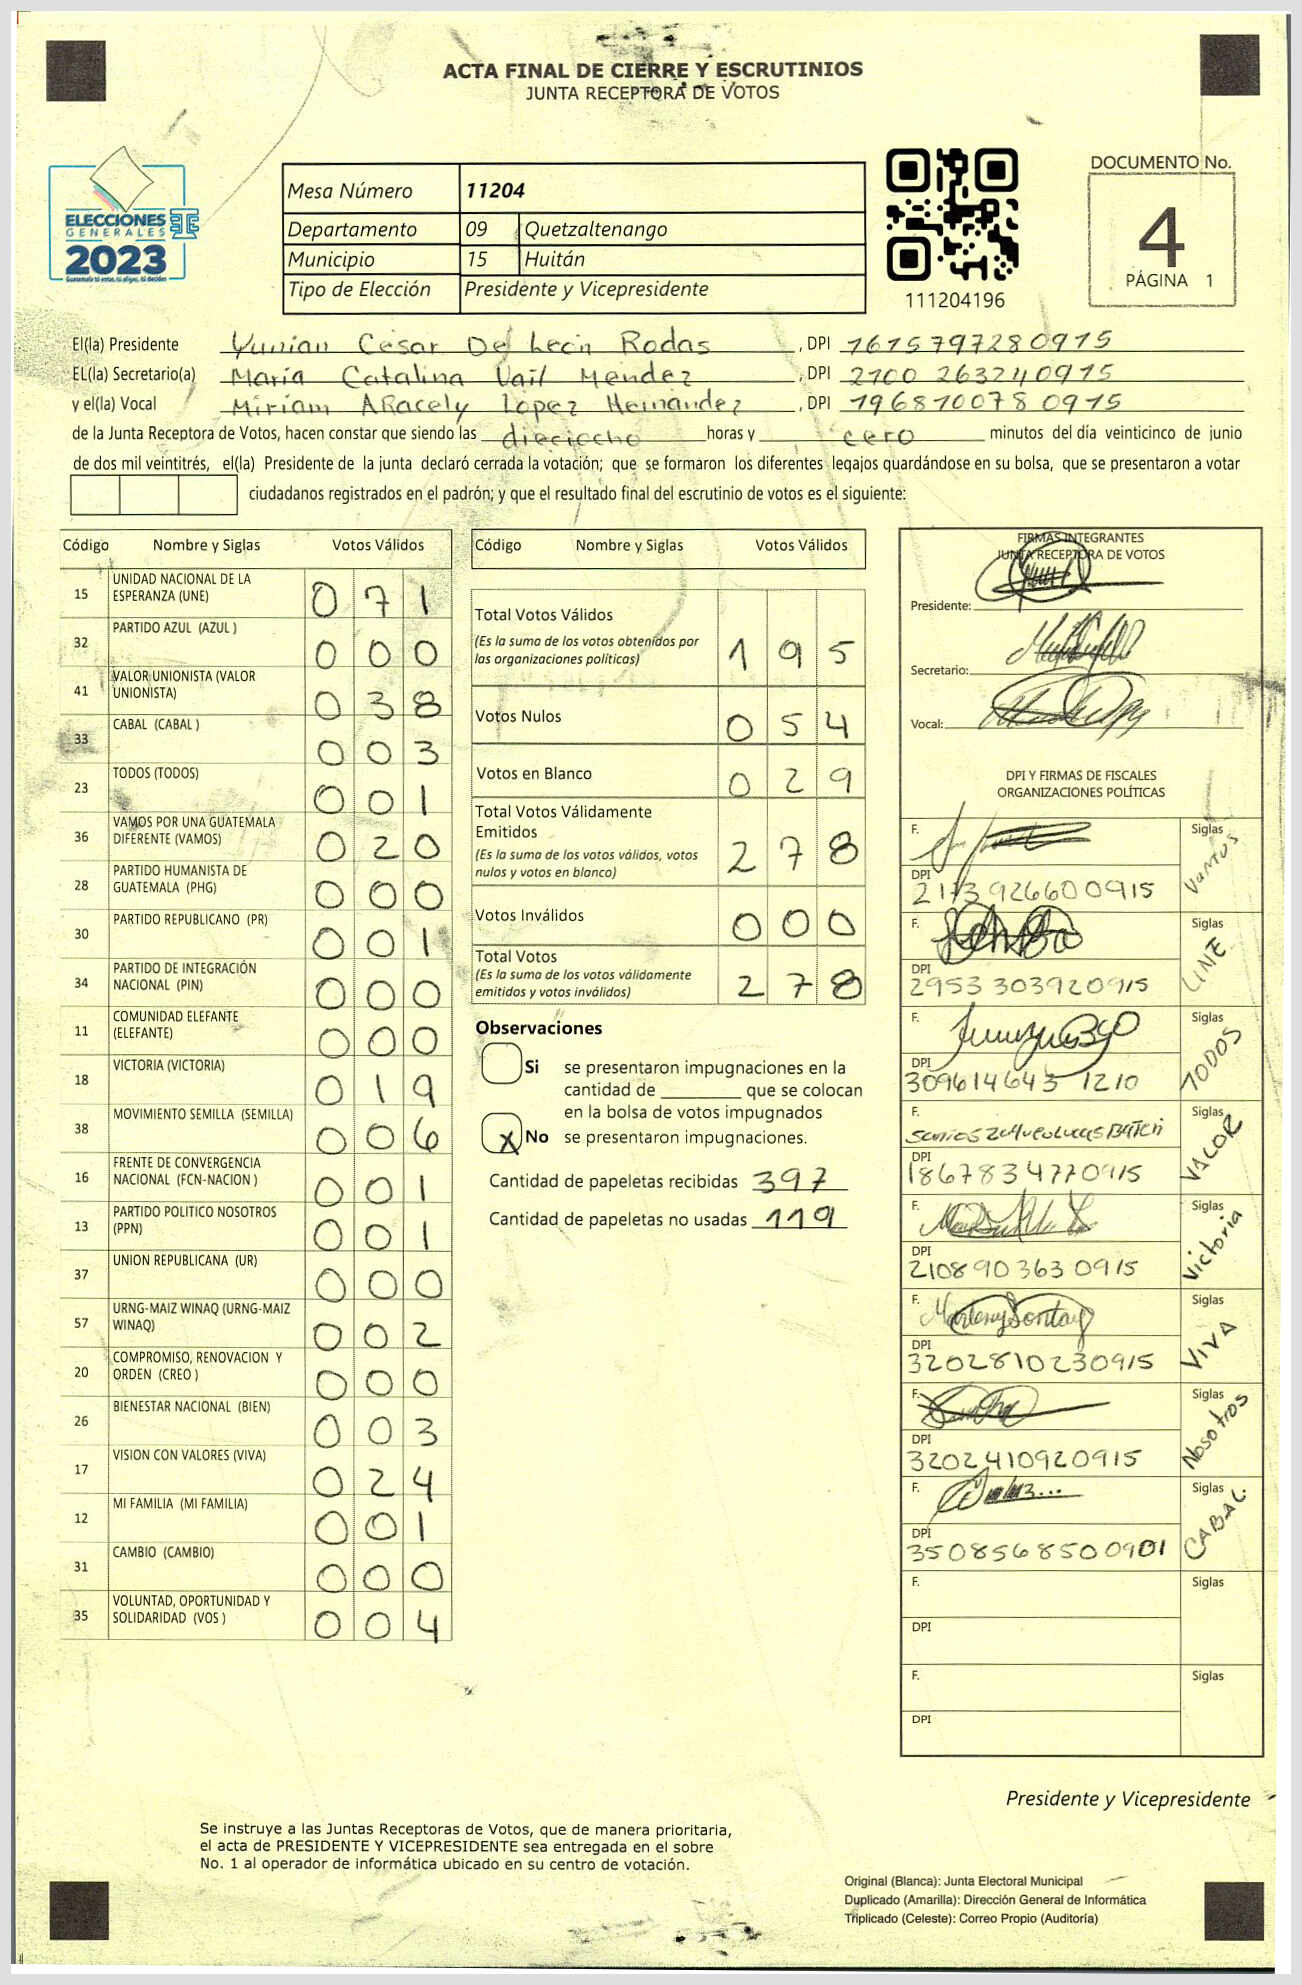 ACTA FINAL DE CIERRE Y ESCRUTINIOS
JUNTA RECEPTORA DE VOTOS
ELECCIONES
GENERALES
2023
Guatemala tú votas, tú eliges, tú decides
Mesa Número 11204
Departamento 09 Quetzaltenango
Municipio 15 Huitán
Tipo de Elección Presidente y Vicepresidente
111204196
DOCUMENTO No.
4
PÁGINA 1
El(la) Presidente Yunian Cesar De León Rodas, DPI 1615797280915
EL(la) Secretario(a) María Catalina Vail Mendez, DPI 2100 263240915
y el(la) Vocal Miriam ARacely López Hernandez, DPI 1968100780915
de la Junta Receptora de Votos, hacen constar que siendo las dieciocho horas y cero minutos del día veinticinco de junio
de dos mil veintitrés, el(la) Presidente de la junta declaró cerrada la votación; que se formaron los diferentes legajos guardándose en su bolsa, que se presentaron a votar
ciudadanos registrados en el padrón; y que el resultado final del escrutinio de votos es el siguiente:
Código Nombre y Siglas Votos Válidos
15 UNIDAD NACIONAL DE LA ESPERANZA (UNE) 071
32 PARTIDO AZUL (AZUL ) 000
41 VALOR UNIONISTA (VALOR UNIONISTA) 038
33 CABAL (CABAL ) 003
23 TODOS (TODOS) 001
36 VAMOS POR UNA GUATEMALA DIFERENTE (VAMOS) 020
28 PARTIDO HUMANISTA DE GUATEMALA (PHG) 000
30 PARTIDO REPUBLICANO (PR) 001
34 PARTIDO DE INTEGRACIÓN NACIONAL (PIN) 000
11 COMUNIDAD ELEFANTE (ELEFANTE) 000
18 VICTORIA (VICTORIA) 019
38 MOVIMIENTO SEMILLA (SEMILLA) 006
16 FRENTE DE CONVERGENCIA NACIONAL (FCN-NACION ) 001
13 PARTIDO POLITICO NOSOTROS (PPN) 001
37 UNION REPUBLICANA (UR) 000
57 URNG-MAIZ WINAQ (URNG-MAIZ WINAQ) 002
20 COMPROMISO, RENOVACION Y ORDEN (CREO ) 000
26 BIENESTAR NACIONAL (BIEN) 003
17 VISION CON VALORES (VIVA) 024
12 MI FAMILIA (MI FAMILIA) 001
31 CAMBIO (CAMBIO) 000
35 VOLUNTAD, OPORTUNIDAD Y SOLIDARIDAD (VOS ) 004
Código Nombre y Siglas Votos Válidos
Total Votos Válidos
(Es la suma de los votos obtenidos por
las organizaciones políticas) 195
Votos Nulos 054
Votos en Blanco 029
Total Votos Válidamente
Emitidos
(Es la suma de los votos válidos, votos
nulos y votos en blanco) 278
Votos Inválidos 000
Total Votos
(Es la suma de los votos válidamente
emitidos y votos inválidos) 278
Observaciones
Si se presentaron impugnaciones en la
cantidad de ________ que se colocan
en la bolsa de votos impugnados
X No se presentaron impugnaciones.
Cantidad de papeletas recibidas 397
Cantidad de papeletas no usadas 119
FIRMAS INTEGRANTES
JUNTA RECEPTORA DE VOTOS
Presidente:
Secretario:
Vocal:
DPI Y FIRMAS DE FISCALES
ORGANIZACIONES POLÍTICAS
F. Siglas Vamos
DPI 2173926600915
F. Siglas UNE
DPI 2953 303920915
F. Siglas TODOS
DPI 309614643 1210
F. Siglas VALOR
DPI 1867834770915
F. Siglas Victoria
DPI 2108903630915
F. Marleny Sontay Siglas VIVA
DPI 3202810230915
F. Siglas Nosotros
DPI 3202410920915
F. Siglas CABAL
DPI 3508568500901
F. Siglas
DPI
F. Siglas
DPI
Presidente y Vicepresidente
Se instruye a las Juntas Receptoras de Votos, que de manera prioritaria,
el acta de PRESIDENTE Y VICEPRESIDENTE sea entregada en el sobre
No. 1 al operador de informática ubicado en su centro de votación.
Original (Blanca): Junta Electoral Municipal
Duplicado (Amarilla): Dirección General de Informática
Triplicado (Celeste): Correo Propio (Auditoría)